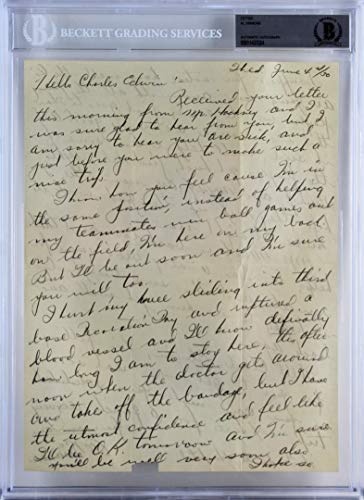 BECKETT GRADING SERVICES
AL SIMMONS
AUTHENTIC AUTOGRAPH
BECKETT
Wed June 4th/30
Hello Charles Edwin!
Received your letter
this morning from Mr. Hackney and I
was sure glad to hear from you but I
am sorry to hear you are sick, and
just before you were to make such a
nice trip.
I know how you feel cause I'm in
the same position, instead of helping
my teammates win ball games out
on the field, I'm here on my back.
But I'll be out soon and I'm sure
you will too.
I hurt my knee sliding into third
base Decoration Day and ruptured a
blood vessel and I'll know definitely
how long I am to stay here, this after-
noon when the doctor gets around
and takes off the bandage, but I have
the utmost confidence and feel like
I'll be O.K. tomorrow and I'm sure
you'll be well very soon also
I hope so.